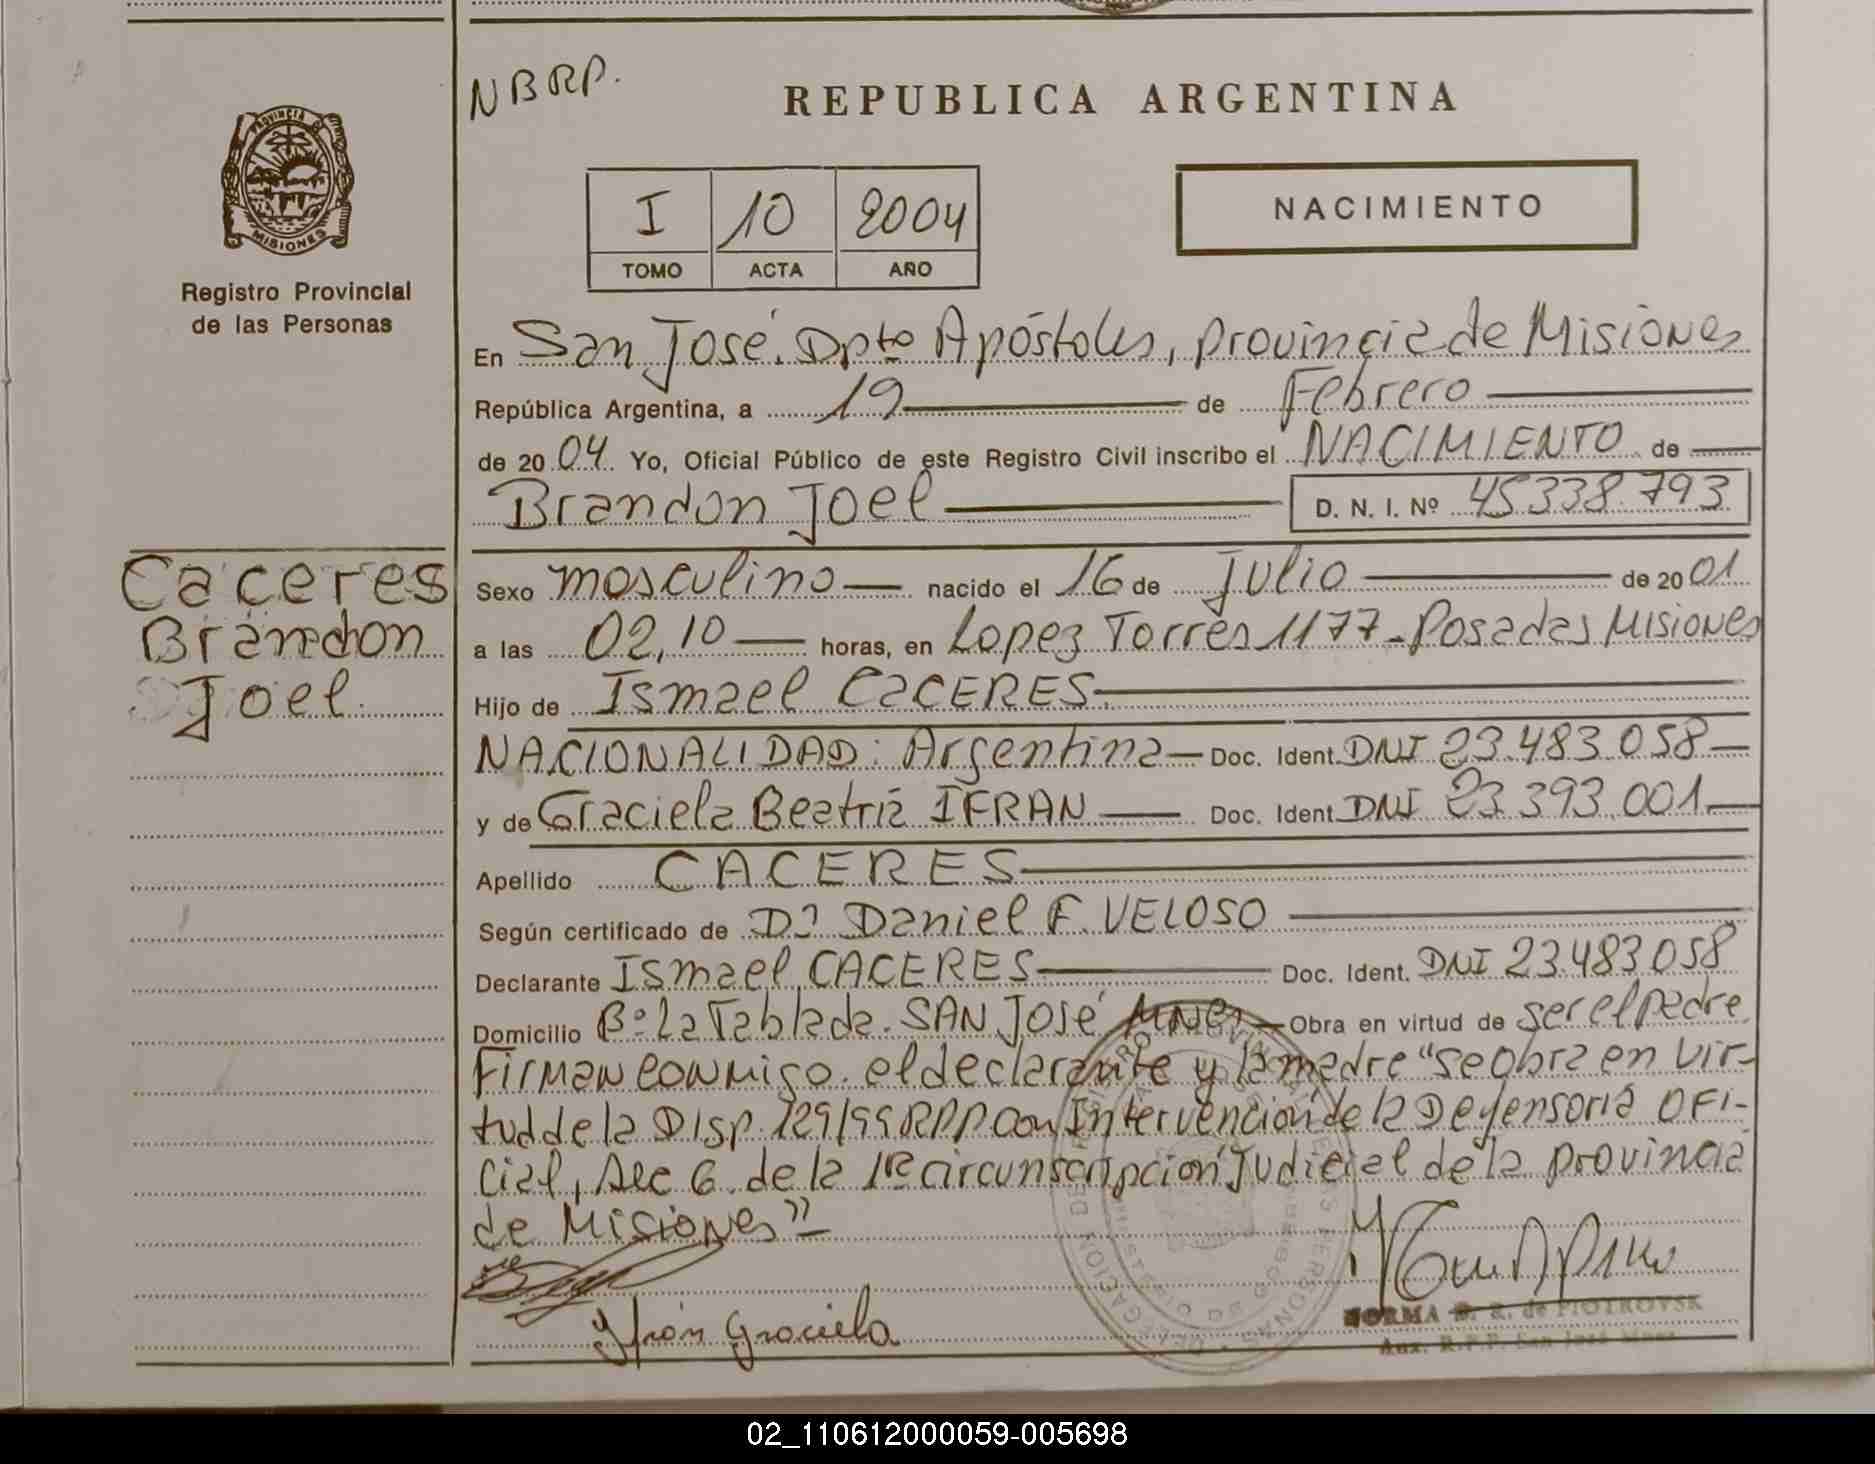 NBRP.
REPUBLICA ARGENTINA
PROVINCIA
MISIONES
Registro Provincial
de las Personas
I 10 2004
TOMO ACTA AÑO
NACIMIENTO
En San José. Dpto Apóstoles, provincia de Misiones
República Argentina, a 19 de Febrero
de 2004 Yo, Oficial Público de este Registro Civil inscribo el NACIMIENTO de
Brandon Joel D. N. I. Nº 45338.793
Caceres
Brandon
Joel
Sexo masculino nacido el 16 de Julio de 2001
a las 02,10 horas, en Lopez Torres 1177-Posadas Misiones
Hijo de Ismael CaCERES
NACIONALIDAD: Argentina Doc. Ident. DNI 23.483.058
y de Graciela Beatriz IFRAN Doc. Ident. DNI 23 393.001
Apellido CACERES
Según certificado de Dr Daniel F. VELOSO
Declarante Ismael CACERES Doc. Ident. DNI 23.483 058
Domicilio Bº La Tablada. SAN José MNES Obra en virtud de ser el padre
Firman conmigo. el declarante y la madre "se obra en vir-
tud de la Disp. 129/99 RPP con Intervención de la Defensoria OFI-
cial, Sec 6. de la 1ra circunscripción Judicial de la provincia
de Misiones"
Ifrán Graciela
NORMA B. R. de PIOTROVSK
Aux. R.P.P. San José Mnes
02_110612000059-005698